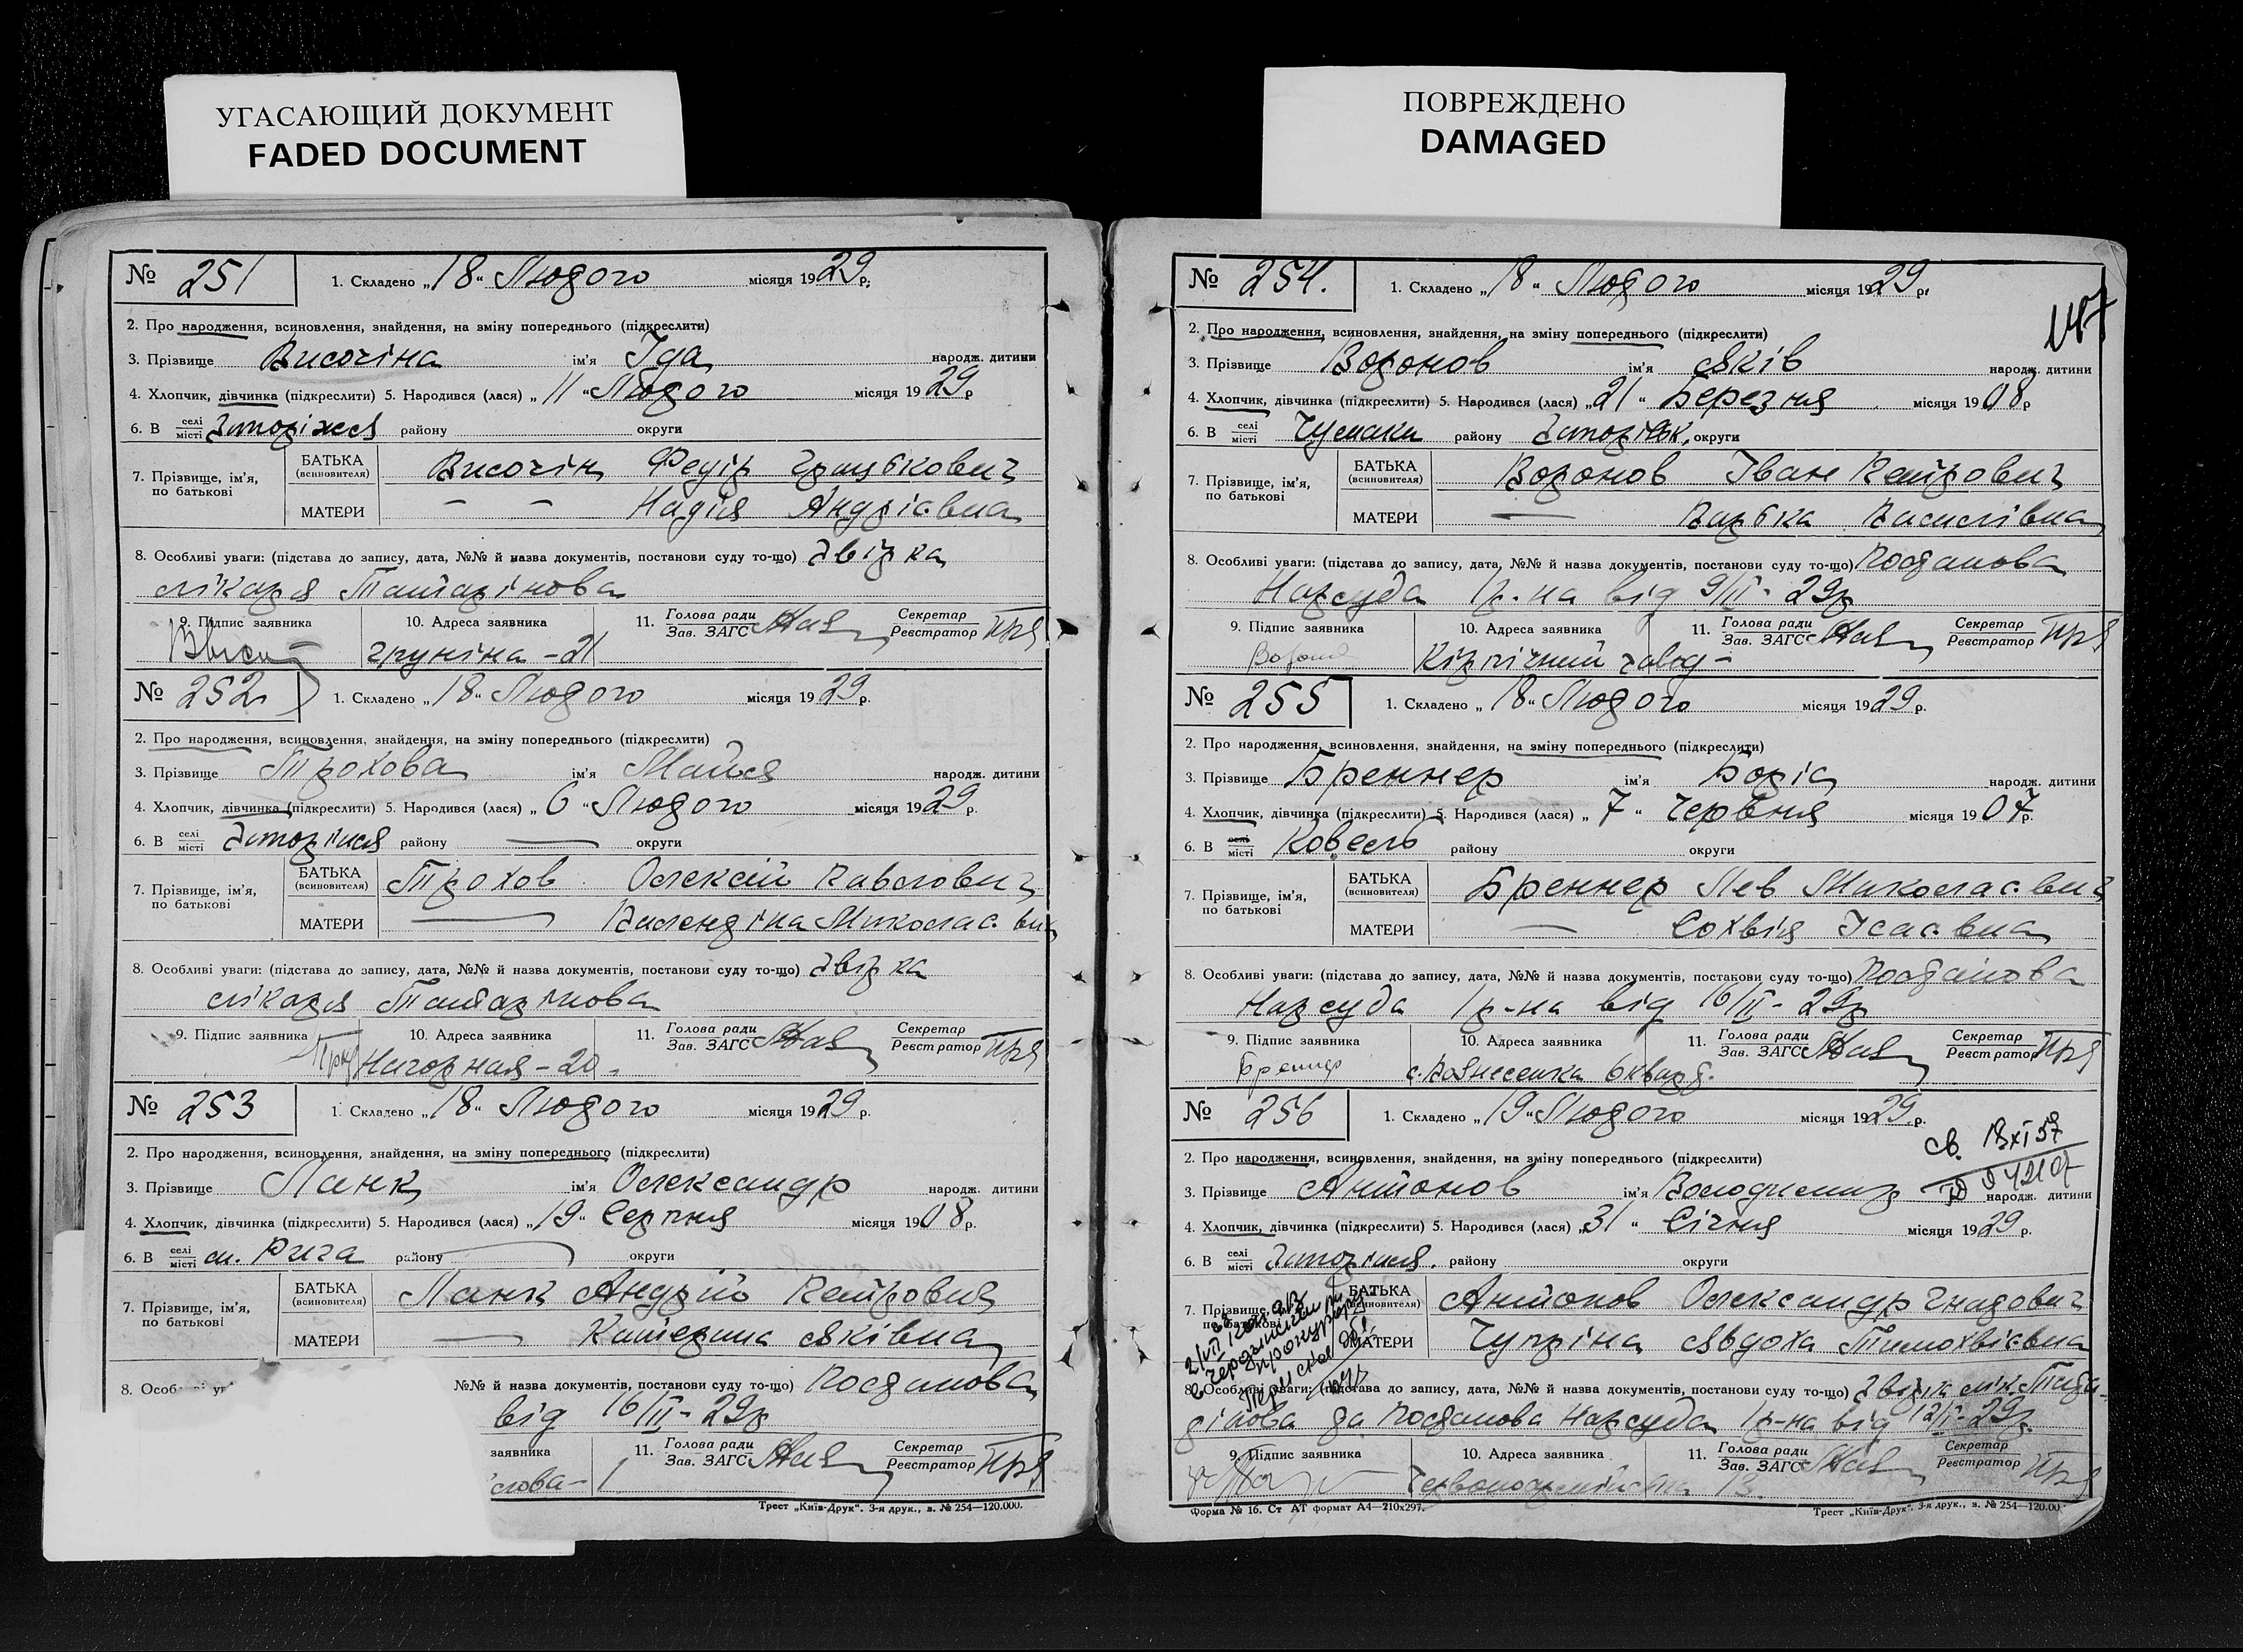 УГАСАЮЩИЙ ДОКУМЕНТ
FADED DOCUMENT
ПОВРЕЖДЕНО
DAMAGED
№ 251 1. Складено „18“ Лютого місяця 1929 р.
2. Про народження, всиновлення, знайдення, на зміну попереднього (підкреслити)
3. Прізвище Височіна ім'я Іда народж. дитини
4. Хлопчик, дівчинка (підкреслити) 5. Народився (лася) „11“ Лютого місяця 1929 р
6. В селі місті Запоріжжя району округи
7. Прізвище, ім'я, по батькові
БАТЬКА (всиновителя) Височін Федір
МАТЕРИ — — Надія Андрієвна
8. Особливі уваги: (підстава до запису, дата, №№ й назва документів, постанови суду то-що) Довідка
лікаря Татарінова
9. Підпис заявника 10. Адреса заявника 11. Голова ради Зав. ЗАГС Секретар Реєстратор
Груніна - 21
№ 252 1. Складено „18“ Лютого місяця 1929 р.
2. Про народження, всиновлення, знайдення, на зміну попереднього (підкреслити)
3. Прізвище Трохова ім'я Майя народж. дитини
4. Хлопчик, дівчинка (підкреслити) 5. Народився (лася) „6“ Лютого місяця 1929 р.
6. В селі місті Запоріжжя району — округи
7. Прізвище, ім'я, по батькові
БАТЬКА (всиновителя) Трохов Олексій Павлович
МАТЕРИ — Валендіна Миколаєвна
8. Особливі уваги: (підстава до запису, дата, №№ й назва документів, постанови суду то-що) Довідка
лікаря Татарінова
9. Підпис заявника 10. Адреса заявника 11. Голова ради Зав. ЗАГС Секретар Реєстратор
Нагорная - 20
№ 253 1. Складено „18“ Лютого місяця 1929 р.
2. Про народження, всиновлення, знайдення, на зміну попереднього (підкреслити)
3. Прізвище Ланк ім'я Олександр народж. дитини
4. Хлопчик, дівчинка (підкреслити) 5. Народився (лася) „19“ Серпня місяця 1908 р.
6. В селі місті м. Рига району — округи
7. Прізвище, ім'я, по батькові
БАТЬКА (всиновителя) Ланк Андрій Петрович
МАТЕРИ — Катерина Яківна
8. Особ №№ й назва документів, постанови суду то-що) Постанова
від 16/II - 29р
заявника 11. Голова ради Зав. ЗАГС Секретар Реєстратор
Трест „Київ-Друк“. 3-я друк., з. № 254—120.000.
№ 254. 1. Складено „18“ Лютого місяця 1929 р.
2. Про народження, всиновлення, знайдення, на зміну попереднього (підкреслити)
3. Прізвище Воронов ім'я Яків народж. дитини
4. Хлопчик, дівчинка (підкреслити) 5. Народився (лася) „21“ Березня місяця 1908 р
6. В селі місті Чумаки району округи
7. Прізвище, ім'я, по батькові
БАТЬКА (всиновителя) Воронов Іван Петрович
МАТЕРИ — Варька Василівна
8. Особливі уваги: (підстава до запису, дата, №№ й назва документів, постанови суду то-що) Постанова
Нарсуда 1р-на від 9/II - 29р
9. Підпис заявника 10. Адреса заявника 11. Голова ради Зав. ЗАГС Секретар Реєстратор
Кірпічний завод -
№ 255 1. Складено „18“ Лютого місяця 1929 р.
2. Про народження, всиновлення, знайдення, на зміну попереднього (підкреслити)
3. Прізвище Бреннер ім'я Боріс народж. дитини
4. Хлопчик, дівчинка (підкреслити) 5. Народився (лася) „7“ Червня місяця 1907 р.
6. В селі місті Ковель району округи
7. Прізвище, ім'я, по батькові
БАТЬКА (всиновителя) Бреннер Лев Миколаєвич
МАТЕРИ — Сохвія Ісаєвна
8. Особливі уваги: (підстава до запису, дата, №№ й назва документів, постанови суду то-що) Постанова
Нарсуда 1р-на від 16/II - 29р
9. Підпис заявника 10. Адреса заявника 11. Голова ради Зав. ЗАГС Секретар Реєстратор
Бреннер с. Вознесенка
№ 256 1. Складено „19“ Лютого місяця 1929 р.
св. 18 XI 57
2. Про народження, всиновлення, знайдення, на зміну попереднього (підкреслити)
3. Прізвище Антонов ім'я Володимир народж. дитини
4. Хлопчик, дівчинка (підкреслити) 5. Народився (лася) „31“ Січня місяця 1929 р.
6. В селі місті Запоріжжя. району округи
7. Прізвище, ім'я, по батькові
БАТЬКА (всиновителя) Антонов Олександр Гнатович
МАТЕРИ Чупріна Явдоха Тимохвієвна
8. Особливі уваги: (підстава до запису, дата, №№ й назва документів, постанови суду то-що) Довідка лік. Тата-
рінова да Постанова Нарсуда 1р-на від 12/II - 29р.
9. Підпис заявника 10. Адреса заявника 11. Голова ради Зав. ЗАГС Секретар Реєстратор
Форма № 16. Ст АТ формат А4—210х297. Трест „Київ-Друк“. 3-я друк., з. № 254—120.00